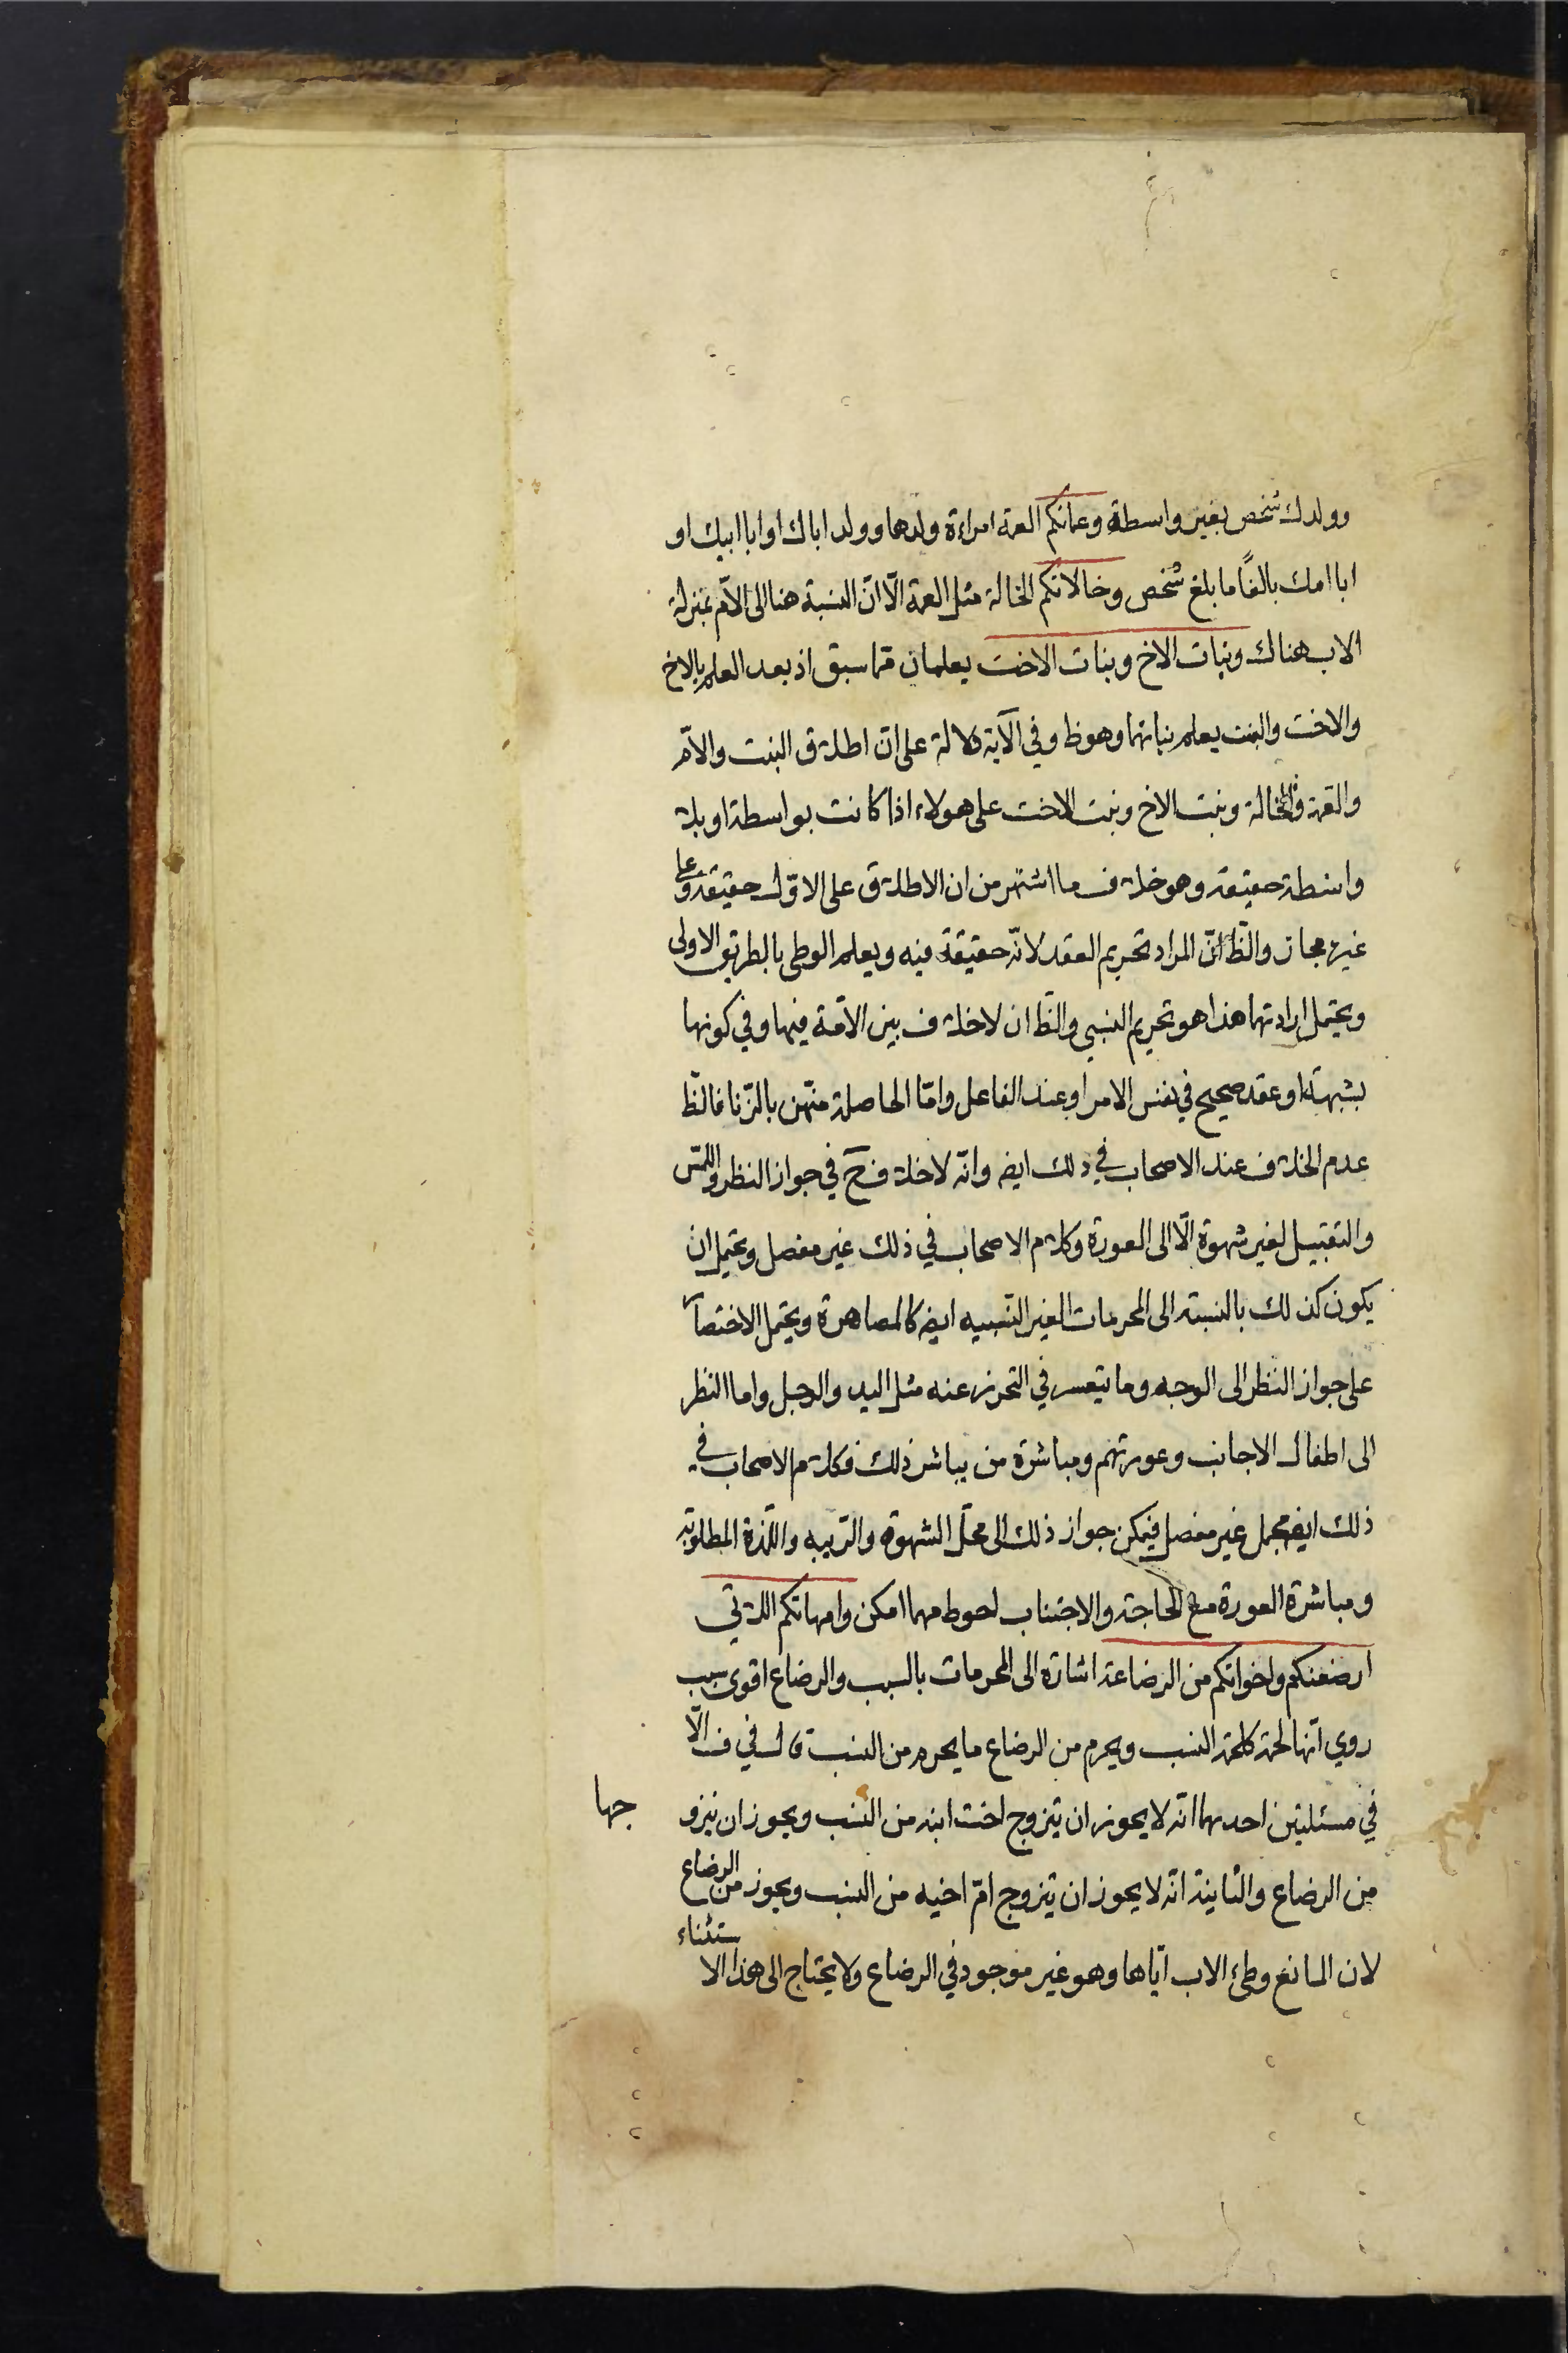 وولدك شخص بغير واسطة وعماتكم العمة امراءة ولدها وولد اباك او ابا ابيك او
ابا امك بالغًا ما بلغ شخص وخالاتكم الخالة مثل العمة الّا انّ النسبة هنا الى الامّ بمنزلة
الاب هناك وبنات الاخ وبنات الاخت يعلمان ممّا سبق اذ بعد العلم بالاخ
والاخت والبنت يعلم بناتهما وهو ظ وفي الآية دلالة على انّ اطلاق البنت والامّ
والعمة والخالة وبنت الاخ وبنت الاخت على هولاء اذا كانت بواسطة او بلا
واسطة حقيقة وهو خلاف ما اشتهر من ان الاطلاق على الاوّل حقيقة وعلى
غيره مجاز والظّ انّ المراد تحريم العقد لانّه حقيقة فيه ويعلم الوطى بالطريق الاولى
ويحتمل ارادتهما هذا هو تحريم النسبي والظّ ان لا خلاف بين الامّة فيها وفي كونها
بشبهة او عقد صحيح في نفس الامر او عند الفاعل وامّا الحاصلة منهن بالزنا فالظّ
عدم الخلاف عند الاصحاب في ذلك ايضه وانّه لا خلاف حَ في جواز النظر واللمس
والتقبيل لغير شهوة الّا الى العورة وكلام الاصحاب في ذلك غير مفصل ويحتمل ان
يكون كذلك بالنسبة الى المحرمات الغير النّسبيه ايضه كالمصاهرة ويحتمل الاختصا
على جواز النظر الى الوجه وما يتعسر في التحرز عنه مثل اليد والرجل واما النظر
الى اطفال الاجانب وعورتهم ومباشرة من يباشر ذلك فكلام الاصحاب في
ذلك ايضه مجمل غير مفصل فيمكن جواز ذلك الى محلّ الشهوة والرّيبه واللّذة المطلوبة
ومباشرة العورة مع الحاجة والاجتناب احوط مهما امكن وامهاتكم اللاتي
ارضعنكم واخواتكم من الرضاعة اشارة الى المحرمات بالسبب والرضاع اقوى سبب
روي انّها لحمة كلحمة النسب ويحرم من الرضاع ما يحرم من النسب قال في ف الّا
في مسئلتين احدهما انّه لا يجوز ان يتزوج اخت ابنه من النسب ويجوز ان يتزو جها
من الرضاع والثانية انّه لا يجوز ان يتزوج امّ اخيه من النسب ويجوز من الرضاع
لان المانع وطئ الاب ايّاها وهو غير موجود في الرضاع ولا يحتاج الى هذا الا ستثناء